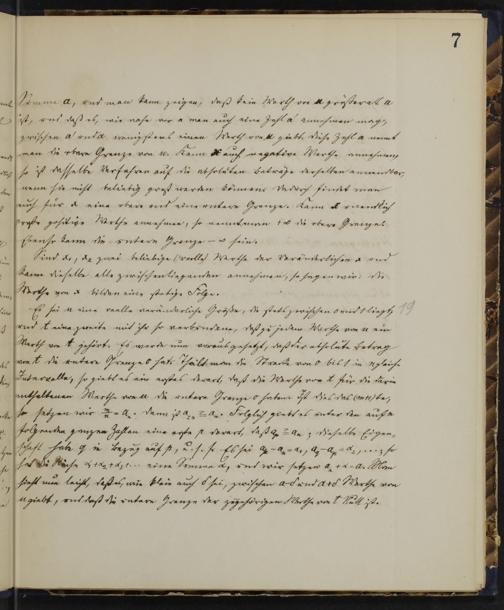 7
Summe a, und man kann zeigen, daß kein Werth von x größer als a
ist, und daß es, wie nahe an a man auch eine Zahl a' annehmen mag,
zwischen a' und a wenigstens einen Werth von x giebt. Diese Zahl a nennt
man die obere Grenze von x. Kann x auch negative Werthe annehmen,
so ist dasselbe Verfahren auf die absoluten Beträge derselben anwendbar,
wenn sie nicht beliebig groß werden können; dadurch findet man
auch für x eine obere und eine untere Grenze. Kann x unendlich
große positive Werthe annehmen, so nennt man +∞ die obere Grenze.
Ebenso kann die untere Grenze -∞ sein.
Sind x₁, x₂ zwei beliebige (reelle) Werthe der Veränderlichen x und
kann dieselbe alle zwischenliegenden annehmen, so sagen wir: die
Werthe von x bilden eine stetige Folge.
Es sei u eine reelle veränderliche Größe, die stets zwischen 0 und 1 liegt, 19
und t eine zweite mit ihr so verbundene, daß zu jedem Werthe von u ein
Werth von t gehört. Es werde nun vorausgesetzt, daß der absolute Betrag
von t die untere Grenze 0 hat. Theilt man die Strecke von 0 bis 1 in n gleiche
Intervalle, so giebt es ein erstes derart, daß die Werthe von t für die darin
enthaltenen Werthe von u die untere Grenze 0 haben. Ist dies das
so setzen wir
folgenden ganzen Zahlen eine erste p derart, daß dieselbe Eigen-
schaft habe q in Bezug auf p, u.s.f. Es sei
hat die Reihe eine Summe a, und wir setzen
sieht nun leicht, daß es, wie klein auch δ sei, zwischen a-δ und a+δ Werthe von
u giebt, und daß die untere Grenze der zugehörigen Werthe von t Null ist.